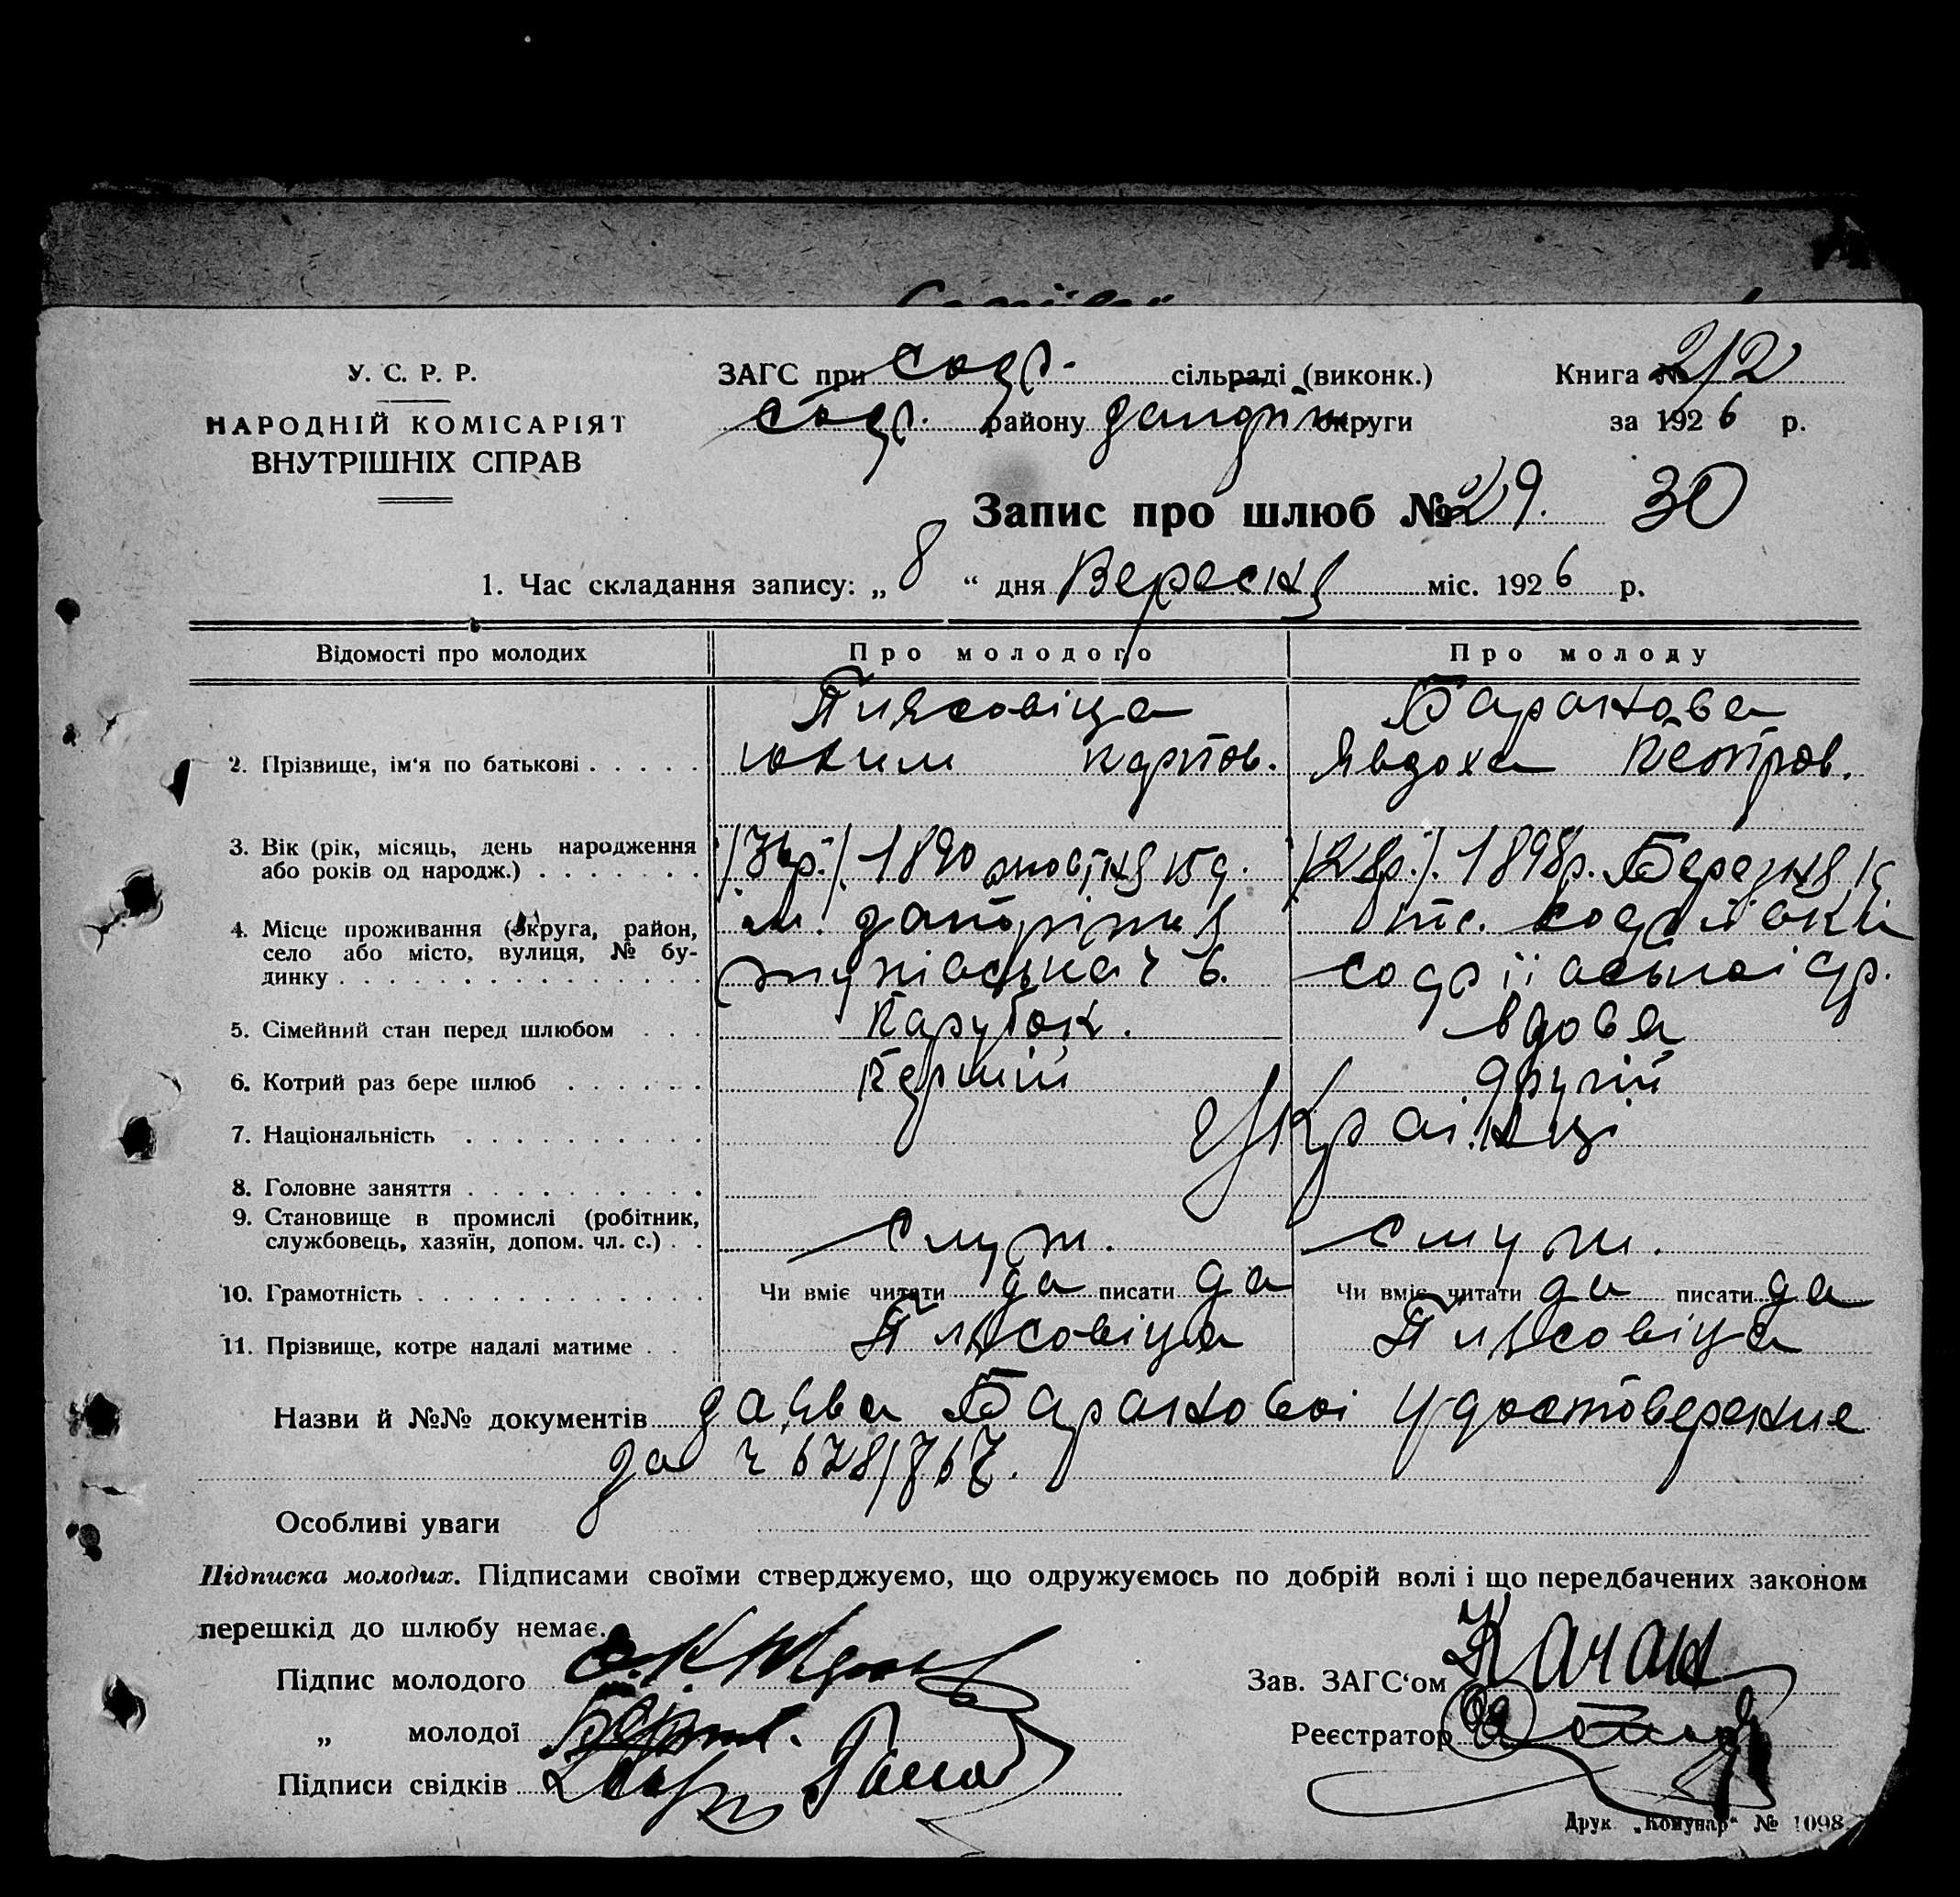 У. С. Р. Р.
НАРОДНІЙ КОМІСАРІЯТ
ВНУТРІШНІХ СПРАВ
ЗАГС при Соф. сільраді (виконк.)
Соф. району Запоріж. округи
Книга № 2/2
за 1926 р.
Запис про шлюб № 29. 30
1. Час складання запису: „8“ дня Вересня міс. 1926 р.
Відомості про молодих Про молодого Про молоду
Плясовіца Баранова
2. Прізвище, ім'я по батькові Юхим Карпов. Явдоха Петров.
3. Вік (рік, місяць, день народження /36р./. 1890 жовтня 15д. /28р./. 1898р. Березня
або років од народж.)
4. Місце проживання (округа, район, м. Запоріжжя
село або місто, вулиця, № бу-
динку ч 6. Софіївської
5. Сімейний стан перед шлюбом Парубок. вдова
6. Котрий раз бере шлюб Перший другий
7. Національність Українці
8. Головне заняття
9. Становище в промислі (робітник, Служ. Служ.
службовець, хазяїн, допом. чл. с.)
10. Грамотність Чи вміє читати да писати да Чи вміє читати да писати да
11. Прізвище, котре надалі матиме Плясовіца Плясовіца
Назви й №№ документів заява Баранової Удостоверение
за ч 628/767.
Особливі уваги
Підписка молодих. Підписами своїми стверджуємо, що одружуємось по добрій волі і що передбачених законом
перешкід до шлюбу немає.
Підпис молодого
Зав. ЗАГС'ом Качан
„ молодої
Реєстратор
Підписи свідків
Друк „Комунар“ № 1098